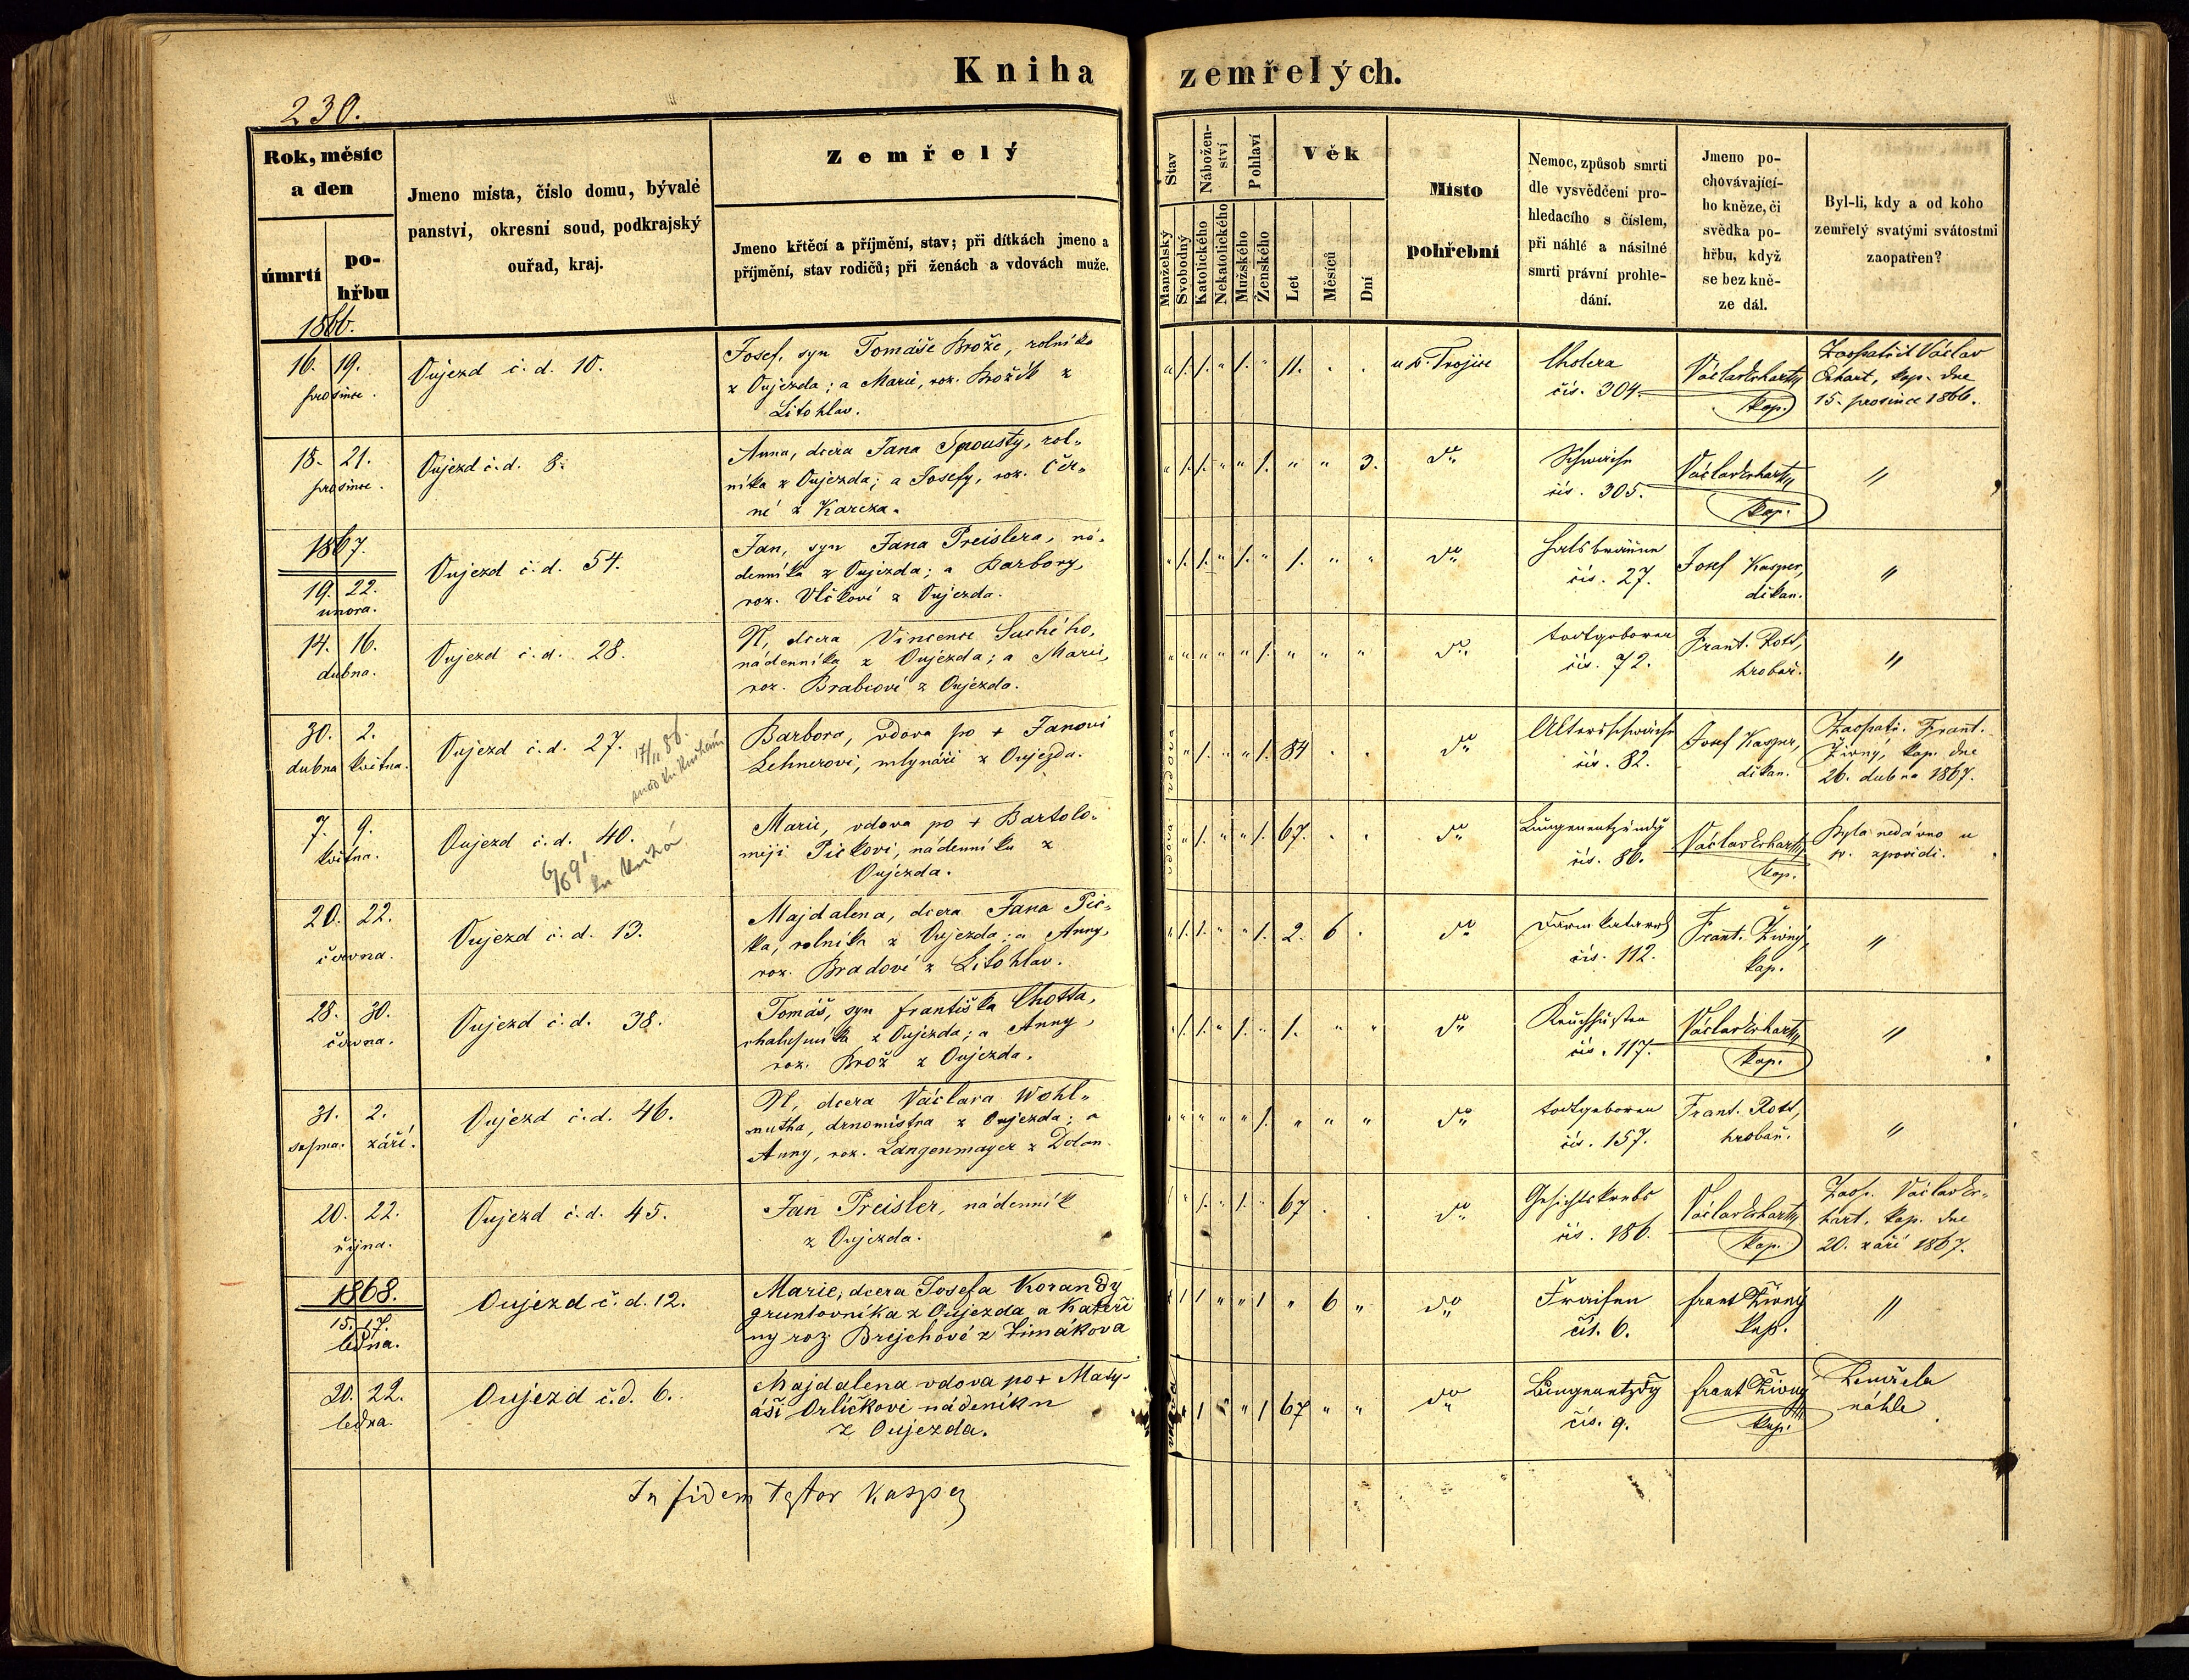 Kniha zemřelých.
230.
Rok, měsíc
a den
úmrtí
po-
hřbu
Jmeno místa, číslo domu, bývalé
panství, okresní soud, podkrajský
ouřad, kraj.
Zemřelý
Jmeno křtěcí a příjmění, stav; při dítkách jmeno a
příjmění, stav rodičů; při ženách a vdovách muže.
Stav
Manželský
Svobodný
Nábožen-
ství
Katolického
Nekatolického
Pohlaví
Mužského
Ženského
Věk
Let
Měsíců
Dní
Místo
pohřební
Nemoc, způsob smrti
dle vysvědčení pro-
hledacího s číslem,
při náhlé a násilné
smrti právní prohle-
dání.
Jmeno po-
chovávající-
ho kněze, či
svědka po-
hřbu, když
se bez kně-
ze dál.
Byl-li, kdy a od koho
zemřelý svatými svátostmi
zaopatřen?
1866.
16. 19.
prosince.
Oujezd č. d. 10.
Josef, syn Tomáše Brože, rolníka
z Oujezda; a Marie, roz. Brožík z
Litohlav.
" /. /. " /. " 11. . .
u sv. Trojice
Cholera
čís. 304.
Václav Erhart,
kap.
Zaopatřil Václav
Erhart, kap. dne
15. prosince 1866.
18. 21.
prosince.
Oujezd č. d. 8.
Anna, dcera Jana Spousty, rol-
níka z Oujezda; a Josefy, roz. Čer-
né z Kařeza.
" /. /. " " /. " " 3.
do
Schwäche
čís. 305.
Václav Erhart,
kap.
"
1867.
19. 22.
února.
Oujezd č. d. 54.
Jan, syn Jana Preislera, ná-
denníka z Oujezda; a Barbory,
roz. Vlčkové z Oujezda.
" /. /. " /. " 1. " "
do
Halsbräune
čís. 27.
Josef Kasper,
děkan.
"
14. 16.
dubna.
Oujezd č. d. 28.
N, dcera Vincence Suchého,
nádenníka z Oujezda; a Marie,
roz. Brabcové z Oujezda.
" " " " " /. " " "
do
todtgeboren
čís. 72.
Frant. Rott,
hrobař.
"
30. 2.
dubna května.
Oujezd č. d. 27.
17/11 86.
Barbora, vdova po + Janovi
Lehnerovi, mlynáři z Oujezda.
vdova " /. " " /. 84 . .
do
Altersschwäche
čís. 82.
Josef Kasper,
děkan.
Zaopatř. Frant.
Živný, kap. dne
26. dubna 1867.
7. 9.
května.
Oujezd č. d. 40.
Marie, vdova po + Bartolo-
měji Pickovi, nádenníku z
Oujezda.
vdova " /. " " /. 67. . .
do
Lungenentzündg
čís. 86.
Václav Erhart,
kap.
Byla nedávno u
sv. zpovědi.
20. 22.
června.
Oujezd č. d. 13.
Majdalena, dcera Jana Pic-
ka, rolníka z Oujezda; a Anny,
roz. Bradové z Litohlav.
" /. /. " " /. 2. 6 .
do
Darmkatarrh
čís. 112.
Frant. Živný,
kap.
"
28. 30.
června.
Oujezd č. d. 38.
Tomáš, syn Františka Chotta,
chalupníka z Oujezda; a Anny,
roz. Brož z Oujezda.
" /. /. " /. " 1. " "
do
Keuchhusten
čís. 117.
Václav Erhart,
kap.
"
31. 2.
srpna. září.
Oujezd č. d. 46.
N, dcera Václava Wohl-
mutha, drnomistra z Oujezda; a
Anny, roz. Langenmayer z Dolan.
" " " " " /. " " "
do
todtgeboren
čís. 157.
Frant. Rott,
hrobař.
"
20. 22.
října.
Oujezd č. d. 45.
Jan Preisler, nádenník
z Oujezda.
/ " /. " /. " 67 . .
do
Gesichtskrebs
čís. 186.
Václav Erhart,
kap.
Zaop. Václav Er-
hart, kap. dne
20. září 1867.
1868.
15. 17.
ledna.
Oujezd č. d. 12.
Marie, dcera Josefa Korandy
gruntovníka z Oujezda a Kateři
ny roz. Brejchové z Zimákova
" 1 1 " " 1 " 6 "
do
Fraisen
čís. 6.
Frant Živný
kap.
"
20. 22.
ledna.
Oujezd č. d. 6.
Majdalena vdova po + Maty-
áši Orlíčkovi nádeníku
z Oujezda.
vdova " 1 " " 1 67 " "
do
Lungenentzdg
čís. 9.
Frant Živný
kap.
Zemřela
náhle
In fidem testor Kasper